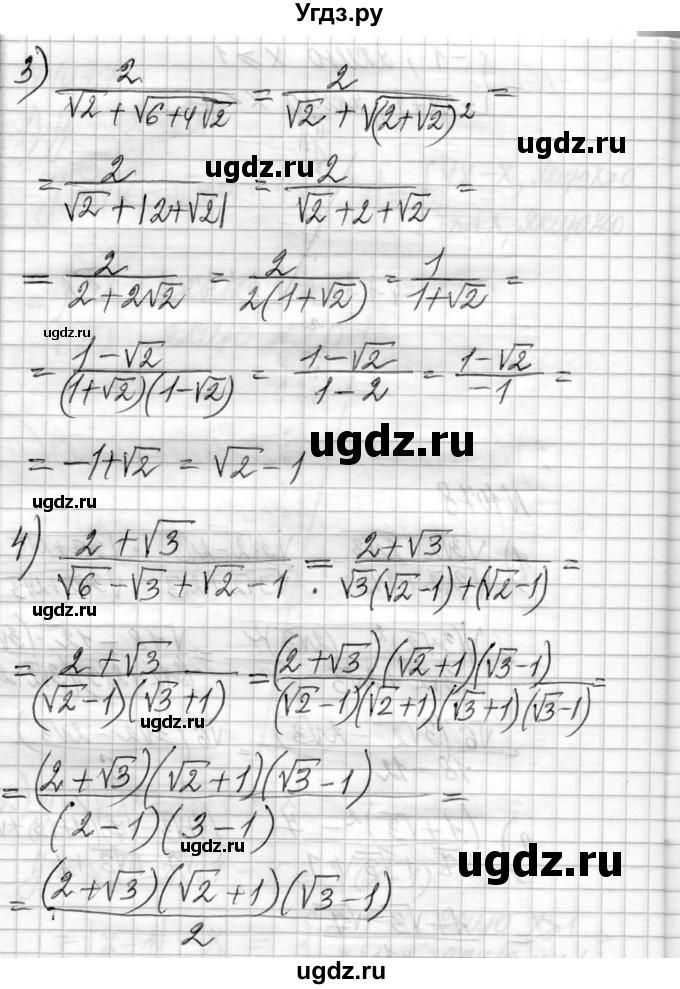 Угдз.ру
3) 2/(√2 + √(6+4√2)) = 2/(√2 + √((2+√2)²)) =
ugdz.ru
ugdz.ru
= 2/(√2 + |2+√2|) = 2/(√2 + 2 + √2) =
= 2/(2 + 2√2) = 2/(2(1+√2)) = 1/(1+√2) =
ugdz.ru
= (1-√2)/((1+√2)(1-√2)) = (1-√2)/(1-2) = (1-√2)/(-1) =
ugdz.ru
= -1+√2 = √2 - 1
ugdz.ru
4) (2+√3)/(√6 - √3 + √2 - 1) = (2+√3)/(√3(√2-1)+(√2-1)) =
ugdz.ru
= (2+√3)/((√2-1)(√3+1)) = (2+√3)(√2+1)(√3-1)/((√2-1)(√2+1)(√3+1)(√3-1)) =
ugdz.ru
= (2+√3)(√2+1)(√3-1)/((2-1)(3-1)) =
ugdz.ru
ugdz.ru
= (2+√3)(√2+1)(√3-1)/2
ugdz.ru